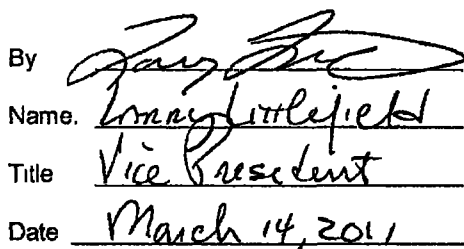 By
Name. Littlefield
Title Vice President
Date March 14, 2011